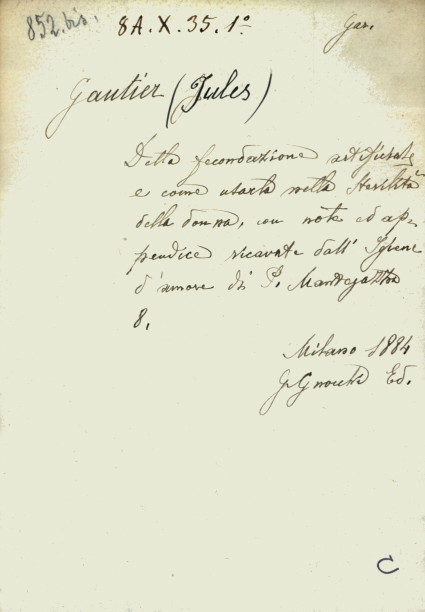 852.bis. 8A.X.35.1º Gar.
Gautier (Jules)
Della fecondazione artificiale
e come usarla nella sterilità
della donna, con note ed ap-
pendice ricavate dall' Igiene
d'amore di P. Mantegazza
8.
Milano 1884
G Gnocchi Ed.
C